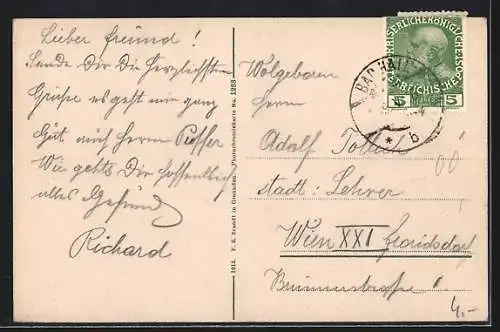 Lieber freund!
Sende Dir Die Herzlichsten
Grüße es geht mir ganz
Gut auch Herrn
Wie gehts Dir hoffentlich
alles Gesund
Richard
1913. F. E. Brandt in Gmunden. Photochromiekarte No. 1263
KAISERLICHE KÖNIGLICHE
5 5
BAD HALL
* b
Wolgeboren
Herrn
Adolf
stadt: Lehrer
Wien XXI
Brünnerstrasse
4,-